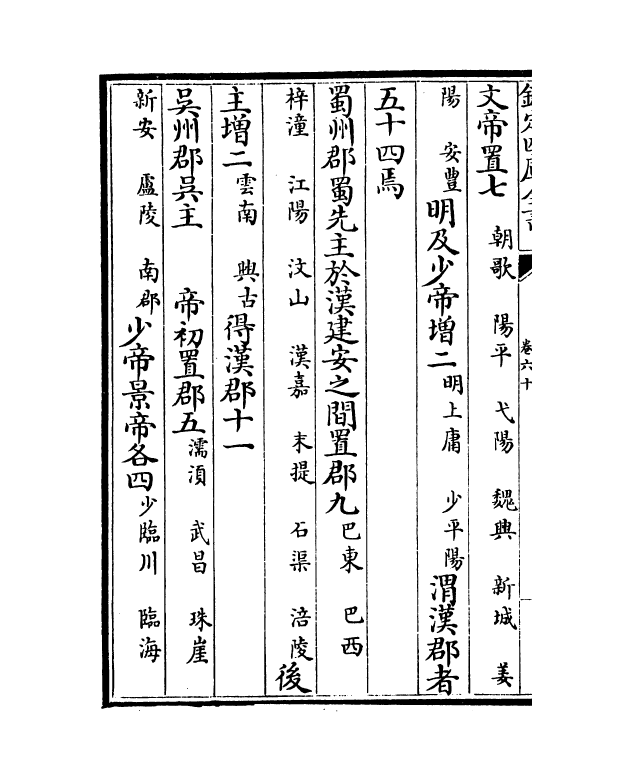 欽定四庫全書
卷六十
文帝置七 朝歌 陽平 弋陽 魏興 新城 姜
陽 安豐 明及少帝增二 明上庸 少平陽 渭漢郡者
五十四焉
蜀州郡蜀先主於漢建安之間置郡九 巴東 巴西
梓潼 江陽 汶山 漢嘉 末提 石渠 涪陵 後
主增二 雲南 興古 得漢郡十一
吳州郡吳主 帝初置郡五 濡湏 武昌 珠崖
新安 廬陵 南郡 少帝景帝各四 少臨川 臨海